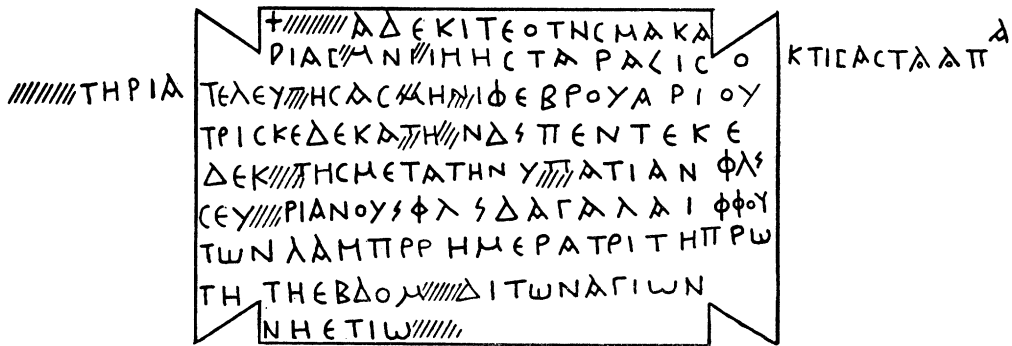 ΤΗΡΙΑ
+ ΑΔΕΚΙΤΕΟΤΗϹΜΑΚΑ
ΡΙΑϹ ΜΝ ΙΗΗϹΤΑΡΑϹΙϹΟ
ΤΕΛΕΥΤΗϹΑϹΜΗΝΙΦΕΒΡΟΥΑΡΙΟΥ
ΤΡΙϹΚΕΔΕΚΑΤΗ ΝΔSΠΕΝΤΕΚΕ
ΔΕΚ ΤΗϹΜΕΤΑΤΗΝΥΠΑΤΙΑΝ ΦΛS
ϹΕΥ ΡΙΑΝΟΥSΦΛSΔΑΓΑΛΑΙΦΦΟΥ
ΤωΝΛΑΜΠΡΡΗΜΕΡΑΤΡΙΤΗΠΡω
ΤΗ ΤΗΕΒΔΟΜ ΔΙΤωΝΑΓΙωΝ
ΝΗΕΤΙω
ΚΤΙϹΑϹΤΑΑΠΑ